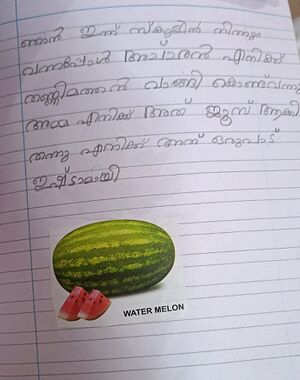 ഞാൻ ഇന്ന് സ്കൂളിൽ നിന്നും
വന്നപ്പോൾ അച്ചാരൻ എനിക്ക്
തണ്ണിമത്തൻ വാങ്ങി കൊണ്ടുവന്നു
അമ്മ എനിക്ക് അത് ജ്യൂസ് ആക്കി
തന്നു എനിക്ക് അത് ഒരുപാട്
ഇഷ്ടമായി
WATER MELON